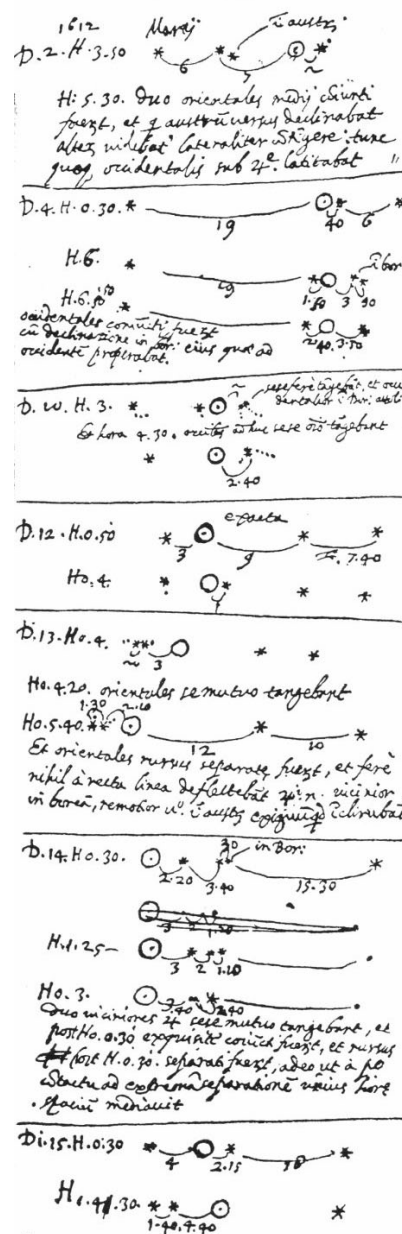 1612 Martij ī austrj.
D. 2. H. 3. 50
6 7
H. 5. 30. duo orientales medij cōiuncti
fuerūt, et q austrū versus declinabat
alterū videbat lateraliter ; tunc
quoq, occidentalis sub ♃e. latitabat
D. 4. H. 0. 30. 19 40 6
H. 6. 19 1.50 3 50 ī bor
H. 6. 50 2.40. 3.50
occidentales coniūcti fuerūt
cū declinatione in bor. eius quæ ad
occidentē properabat.
D. 10. H. 3. sese ferè tāgebāt, et occi
dentalior ī bor.
Et hora 4. 30. adhuc sese tāgebant
2.40
D. 12. H. 0. 50 exacta
3 9 7.40
Ho. 4.
D. 13. Ho. 4. 3
Ho. 4. 20. orientales se mutuo tangebant
1.30 2.20
Ho. 5. 40. 12 10
Et orientales rursus separati fuerūt, et ferè
nihil à recta linea deflectebāt vicinior
in boreā, remotior vº. ī austrū
D. 14. Ho. 30. 20 in Bor.
2.20 3.40 15.30
3 2 1.20
H. 1. 25 3 2 1.20
Ho. 3. 3.40 2.40
Duo viciniores ♃ sese mutuo tangebant, et
post Ho. 0. 30. exquisitè coniūcti fuerūt, et rursus
post H. 0. 30. separati fuerūt, adeo ut à po
cōtactu ad extremā separationē unius hore
spaciū mediavit
Di. 15. H. 0. 30 4 2.15 10
H. 30. 1.40. 4.40